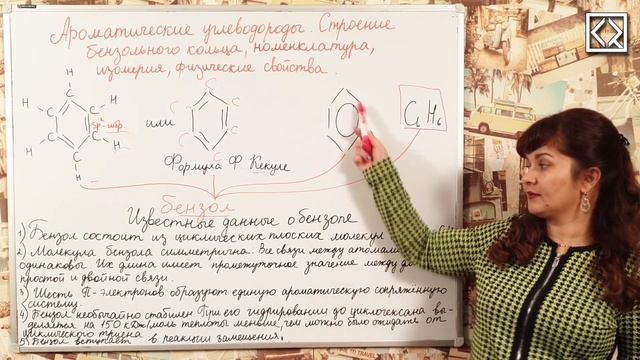 Ароматические углеводороды. Строение
бензольного кольца, номенклатура,
изомерия, физические свойства.
H
H
H
H
H
H
C
C
C
C
C
C
C
C
C
C
C
C
sp²-гибр.
или
C₆H₆
Формула Ф. Кекуле
бензол
Известные данные о бензоле
1) Бензол состоит из циклических плоских молекул
2) Молекула бензола симметрична. Все связи между атомами
одинаковы. Их длина имеет промежуточное значение между
простой и двойной связи.
3) Шесть П-электронов образуют единую ароматическую сопряжённую
систему.
4) Бензол необычайно стабилен. При его гидрировании до циклогексана вы-
деляется на 150 кДж/моль теплоты меньше, чем можно было ожидать от
циклического триена
5) Бензол вступает в реакции замещения.